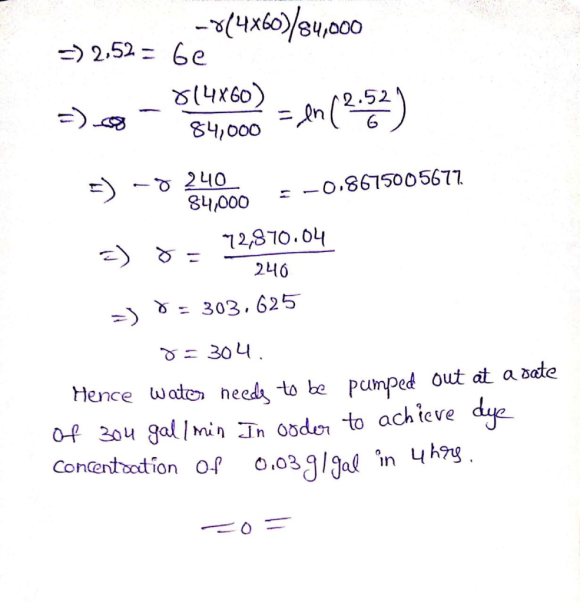 ⇒ 2.52 = 6e^{-r(4×60)/84,000}
⇒ - r(4×60)/84,000 = ln(2.52/6)
⇒ -r 240/84,000 = -0.8675005677
⇒ r = 72,870.04/240
⇒ r = 303.625
r = 304.
Hence water needs to be pumped out at a rate
of 304 gal/min In order to achieve dye
Concentration of 0.03 g/gal in 4 hrs.
=0=